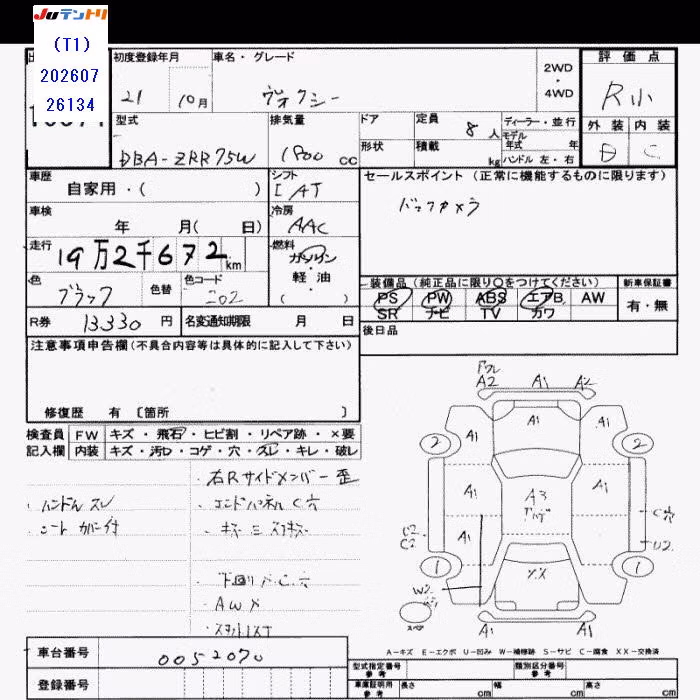 Juテントリ
(T1)
202607
26134
初度登録年月
21 10月
車名・グレード
ヴォクシー
2WD
・
4WD
評価点
R小
外装 内装
C
型式
DBA-ZRR75W
排気量
1800 cc
ドア
形状
定員 8 人
積載 kg
ディーラー・並行
モデル
年式 年
ハンドル 左・右
車歴
自家用・( )
シフト
I AT
車検
年 月( 日)
冷房
AAC
走行
19万2千672 km
燃料
ガソリン
・
軽・油
( )
色
ブラック
色替
色コード
202
R券 13330 円
名変通知期限 月 日
セールスポイント (正常に機能するものに限ります)
バックカメラ
装備品(純正品に限り○をつけてください)
PS PW ABS エアB AW
SR ナビ TV カワ
新車保証書
有・無
後日品
注意事項申告欄(不具合内容等は具体的に記入して下さい)
修復歴 有 〔箇所 〕
検査員 FW キズ・飛石・ヒビ割・リペア跡・×要
記入欄 内装 キズ・汚れ・コゲ・穴・スレ・キレ・破レ
・右Rサイドメンバー歪
・ハンドルスレ
・エンドパネルC穴
・シートカバー付
・下回りX.C.穴
・AWX
A2 A1 A2
A1 A1 A1
2 2
A1 A3 A1
A1
C穴
C2
U2
1 1
W2
XX
スペア
A1 A1
A-キズ E-エクボ U-凹み W-補修跡 S-サビ C-腐食 XX-交換済
車台番号 0052070
登録番号
型式指定番号
参考
類別区分番号
参考
車庫証明用
参考
長さ cm 幅 cm 高さ cm